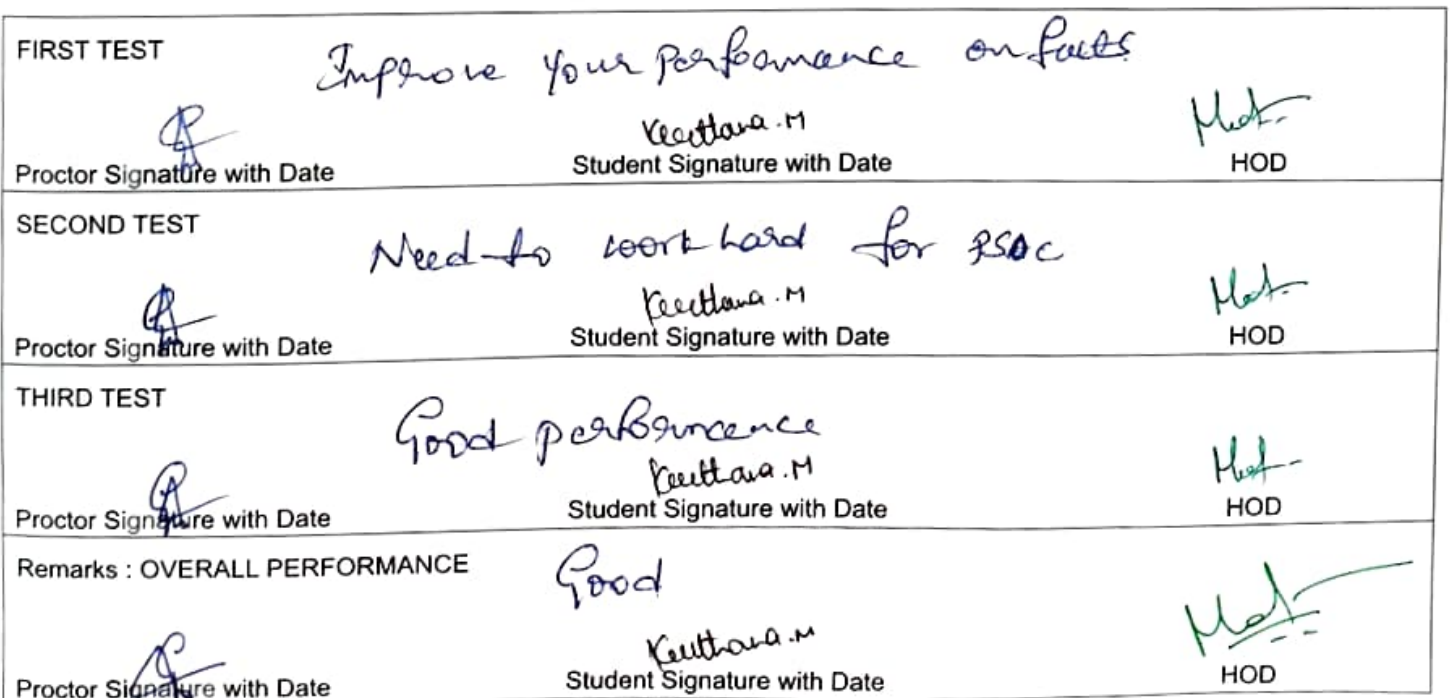 FIRST TEST
Improve your performance on facts
Keerthana.M
Proctor Signature with Date Student Signature with Date HOD
SECOND TEST
Need to work hard for
Keerthana.M
Proctor Signature with Date Student Signature with Date HOD
THIRD TEST
Good performance
Keerthana.M
Proctor Signature with Date Student Signature with Date HOD
Remarks : OVERALL PERFORMANCE Good
Keerthana.M
Proctor Signature with Date Student Signature with Date HOD